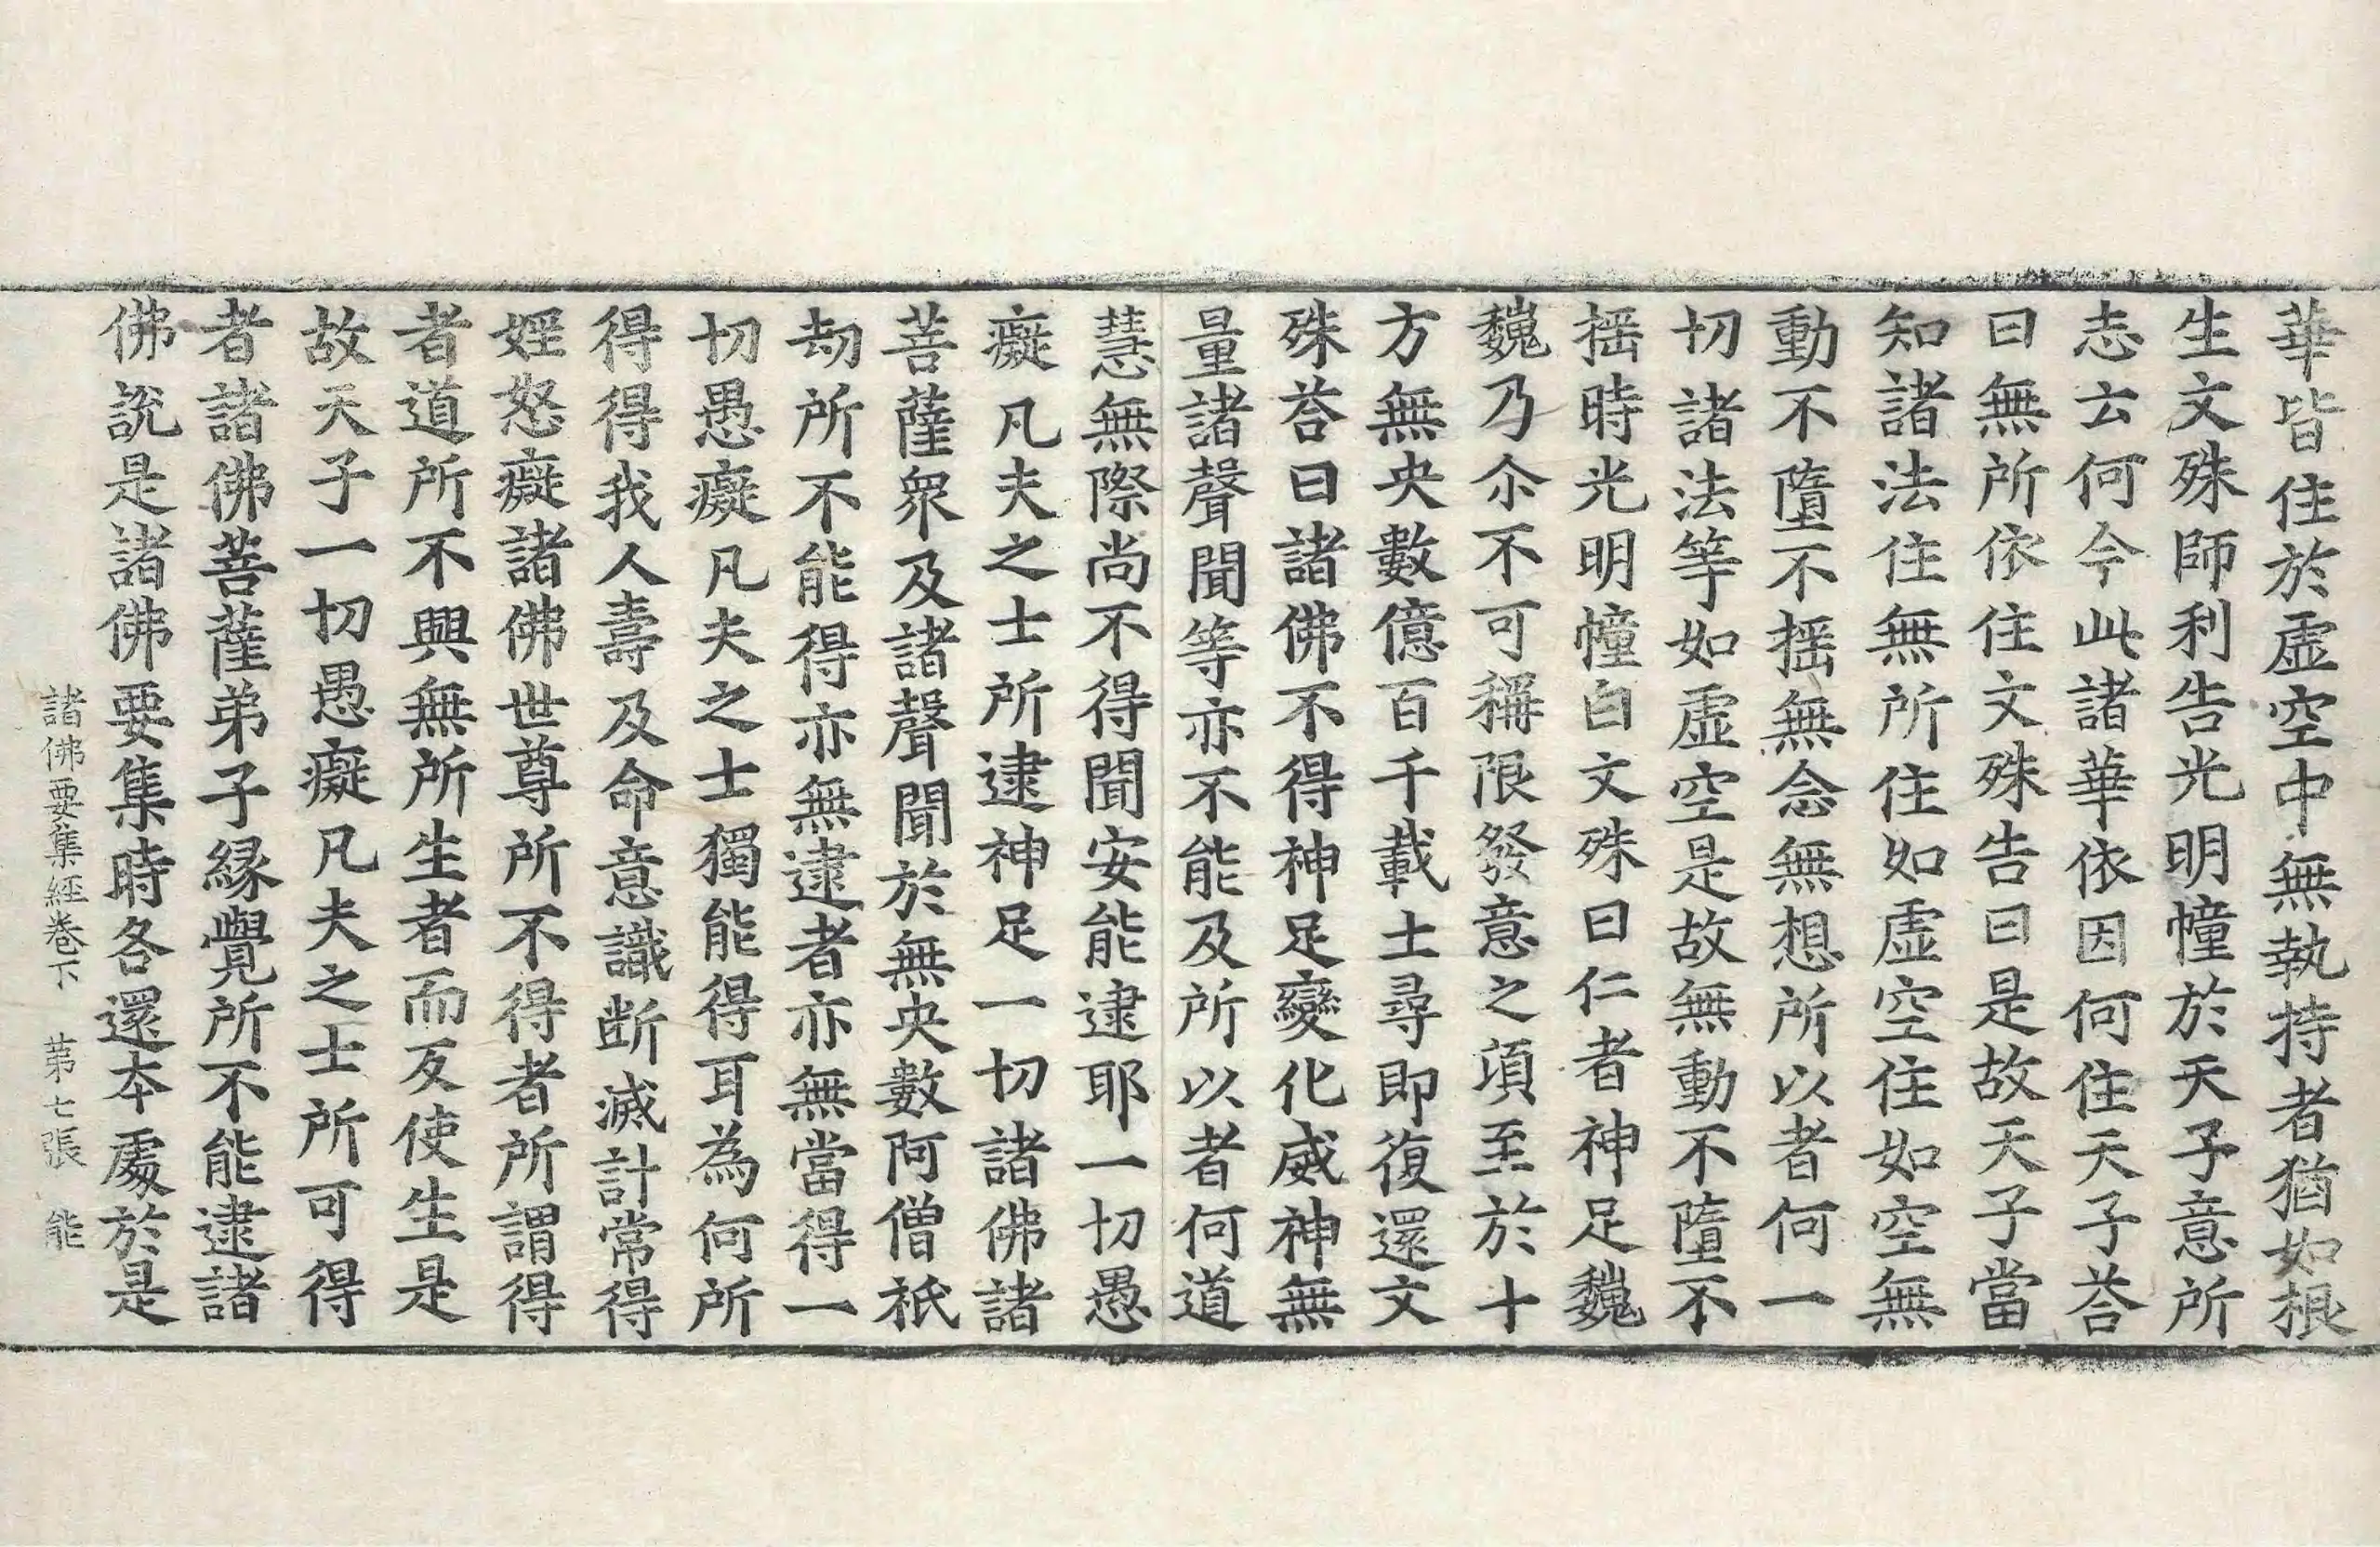 華皆住於虛空中無執持者猶如根
生文殊師利告光明幢於天子意所
志云何今此諸華依因何住天子荅
曰無所依住文殊告曰是故天子當
知諸法住無所住如虛空住如空無
動不墮不揺無念無想所以者何一
切諸法等如虛空是故無動不墮不
揺時光明幢白文殊曰仁者神足巍
巍乃尒不可稱限發意之頃至於十
方無央數億百千載土尋即復還文
殊荅曰諸佛不得神足變化威神無
量諸聲聞等亦不能及所以者何道
慧無際尚不得聞安能逮耶一切愚
癡凡夫之士所逮神足一切諸佛諸
菩薩衆及諸聲聞於無央數阿僧祇
劫所不能得亦無逮者亦無當得一
切愚癡凡夫之士獨能得耳為何所
得得我人壽及命意識断滅計常得
婬怒癡諸佛世尊所不得者所謂得
者道所不興無所生者而反使生是
故天子一切愚癡凡夫之士所可得
者諸佛菩薩弟子緣覺所不能逮諸
佛說是諸佛要集時各還本處於是
諸佛要集經卷下 第七張 能